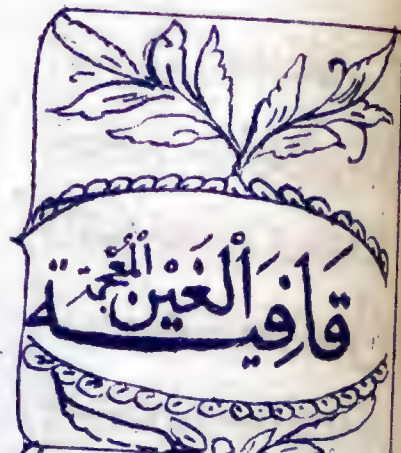 قَافِيَة الْغَيْن الْمُعْجَمَة